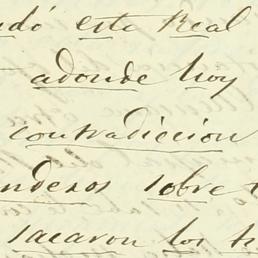 ndó este Real
adonde hoy
contradiccion
nderos sobre
sacaron los